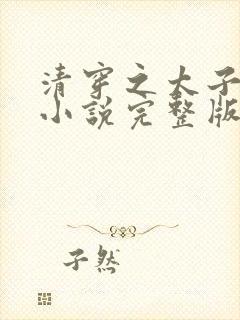 清穿之太子
小说完整版
子然